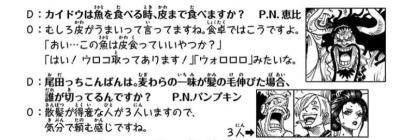 D：カイドウは魚を食べる時、皮まで食べますか？ P.N.恵比
O：むしろ皮がうまいって言ってますね。食卓ではこうですよ。
「あい…この魚は皮食っていいやつか？」
「はい！ウロコ取ってあります！」『ウォロロロ』みたいな。
D：尾田っちこんばんは。麦わらの一味が髪の毛伸びた場合、
誰が切ってるんですか？ P.N.パンプキン
O：散髪が得意な人が3人いますので、
気分で頼む感じですね。
3人→